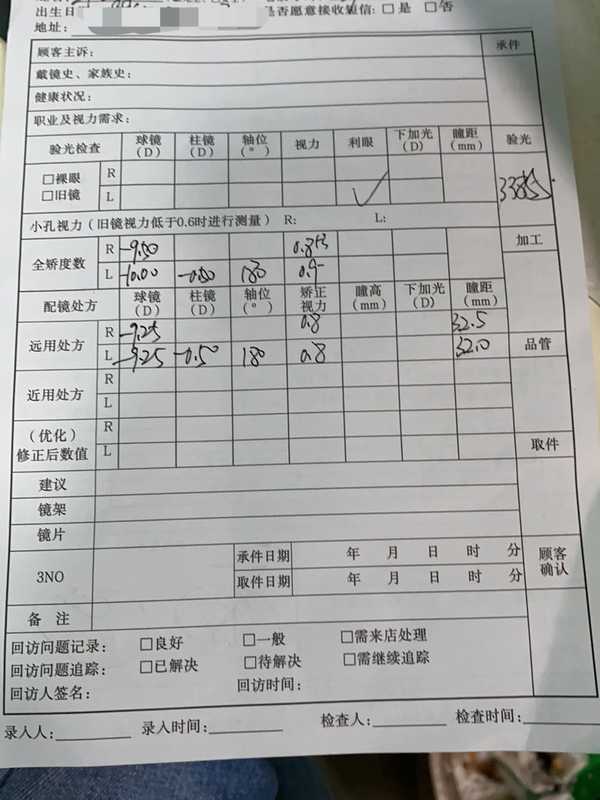 出生日
是否愿意接收短信：□是 □否
地址：
顾客主诉：
承件
戴镜史、家族史：
健康状况：
职业及视力需求：
验光检查 球镜(D) 柱镜(D) 轴位(°) 视力 利眼 下加光(D) 瞳距(mm) 验光
□裸眼 R
□旧镜 L ✓
小孔视力（旧镜视力低于0.6时进行测量） R： L：
加工
全矫度数 R -9.50
L -10.00 -0.50 180
配镜处方 球镜(D) 柱镜(D) 轴位(°) 矫正视力 瞳高(mm) 下加光(D) 瞳距(mm)
远用处方 R -9.25 0.8 32.5
L -9.25 -0.50 180 0.8 32.0
品管
近用处方 R
L
（优化）修正后数值 R
L
取件
建议
镜架
镜片
3NO 承件日期 年 月 日 时 分
取件日期 年 月 日 时 分
顾客确认
备 注
回访问题记录： □良好 □一般 □需来店处理
回访问题追踪： □已解决 □待解决 □需继续追踪
回访人签名： 回访时间：
录入人： 录入时间： 检查人： 检查时间：